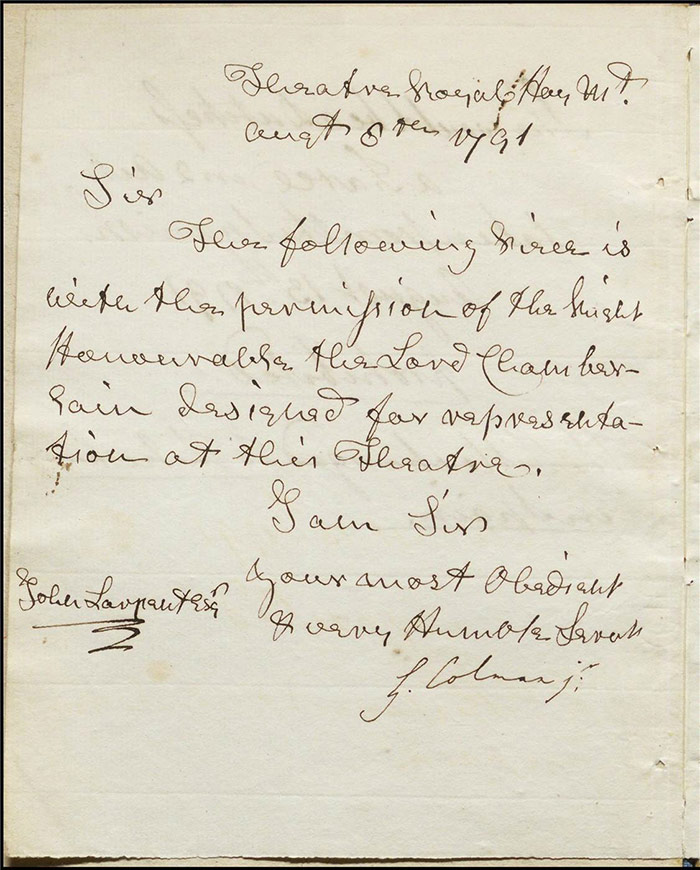 Theatre Royal Hay Mt.
Augt 8th 1791
Sir
The following Piece is
with the permission of the Right
Honourable the Lord Chamber-
lain designed for representa-
tion at this Theatre.
I am Sir
your most Obedient
& very Humble Servt
John Larpent Esqr
G. Colman jr.